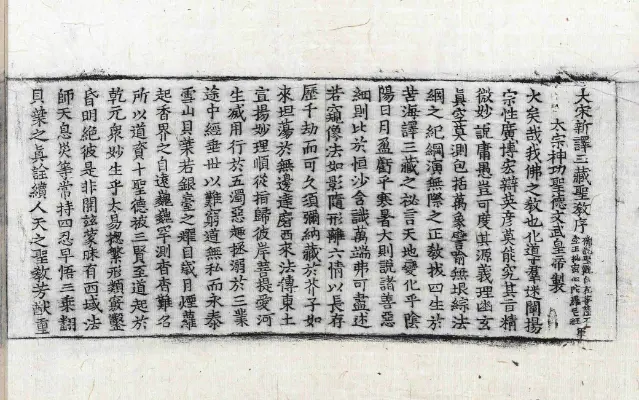 大宋新譯三藏聖教序
太宗神功聖德文武皇帝製
大矣哉我佛之教也化導羣迷闡揚
宗性廣博宏辯英彥莫能究其旨精
微妙說庸愚豈可度其源義理幽玄
真空莫測包括萬象譬喻無垠綜法
網之紀綱演無際之正教拔四生於
苦海譯三藏之祕言天地變化乎陰
陽日月盈虧乎寒暑大則說諸善惡
細則比於恒沙含識萬端弗可盡述
若窺像法如影隨形離六情以長存
歷千劫而可久須彌納藏於芥子如
來坦蕩於無邊達磨西來法傳東土
宣揚妙理順從指歸彼岸菩提愛河
生滅用行於五濁惡趣拯溺於三業
途中經垂世以難窮道無私而永泰
雪山貝葉若銀臺之耀目歲月煙蘿
起香界之自遠巍巍罕測杳杳難名
所以道資十聖德被三賢至道起於
乾元衆妙生乎太易總繁形類竅鑿
昏明絕彼是非開茲蒙昧有西域法
師天息災等常持四忍早悟三乘翻
貝葉之真詮續人天之聖教芳猷重